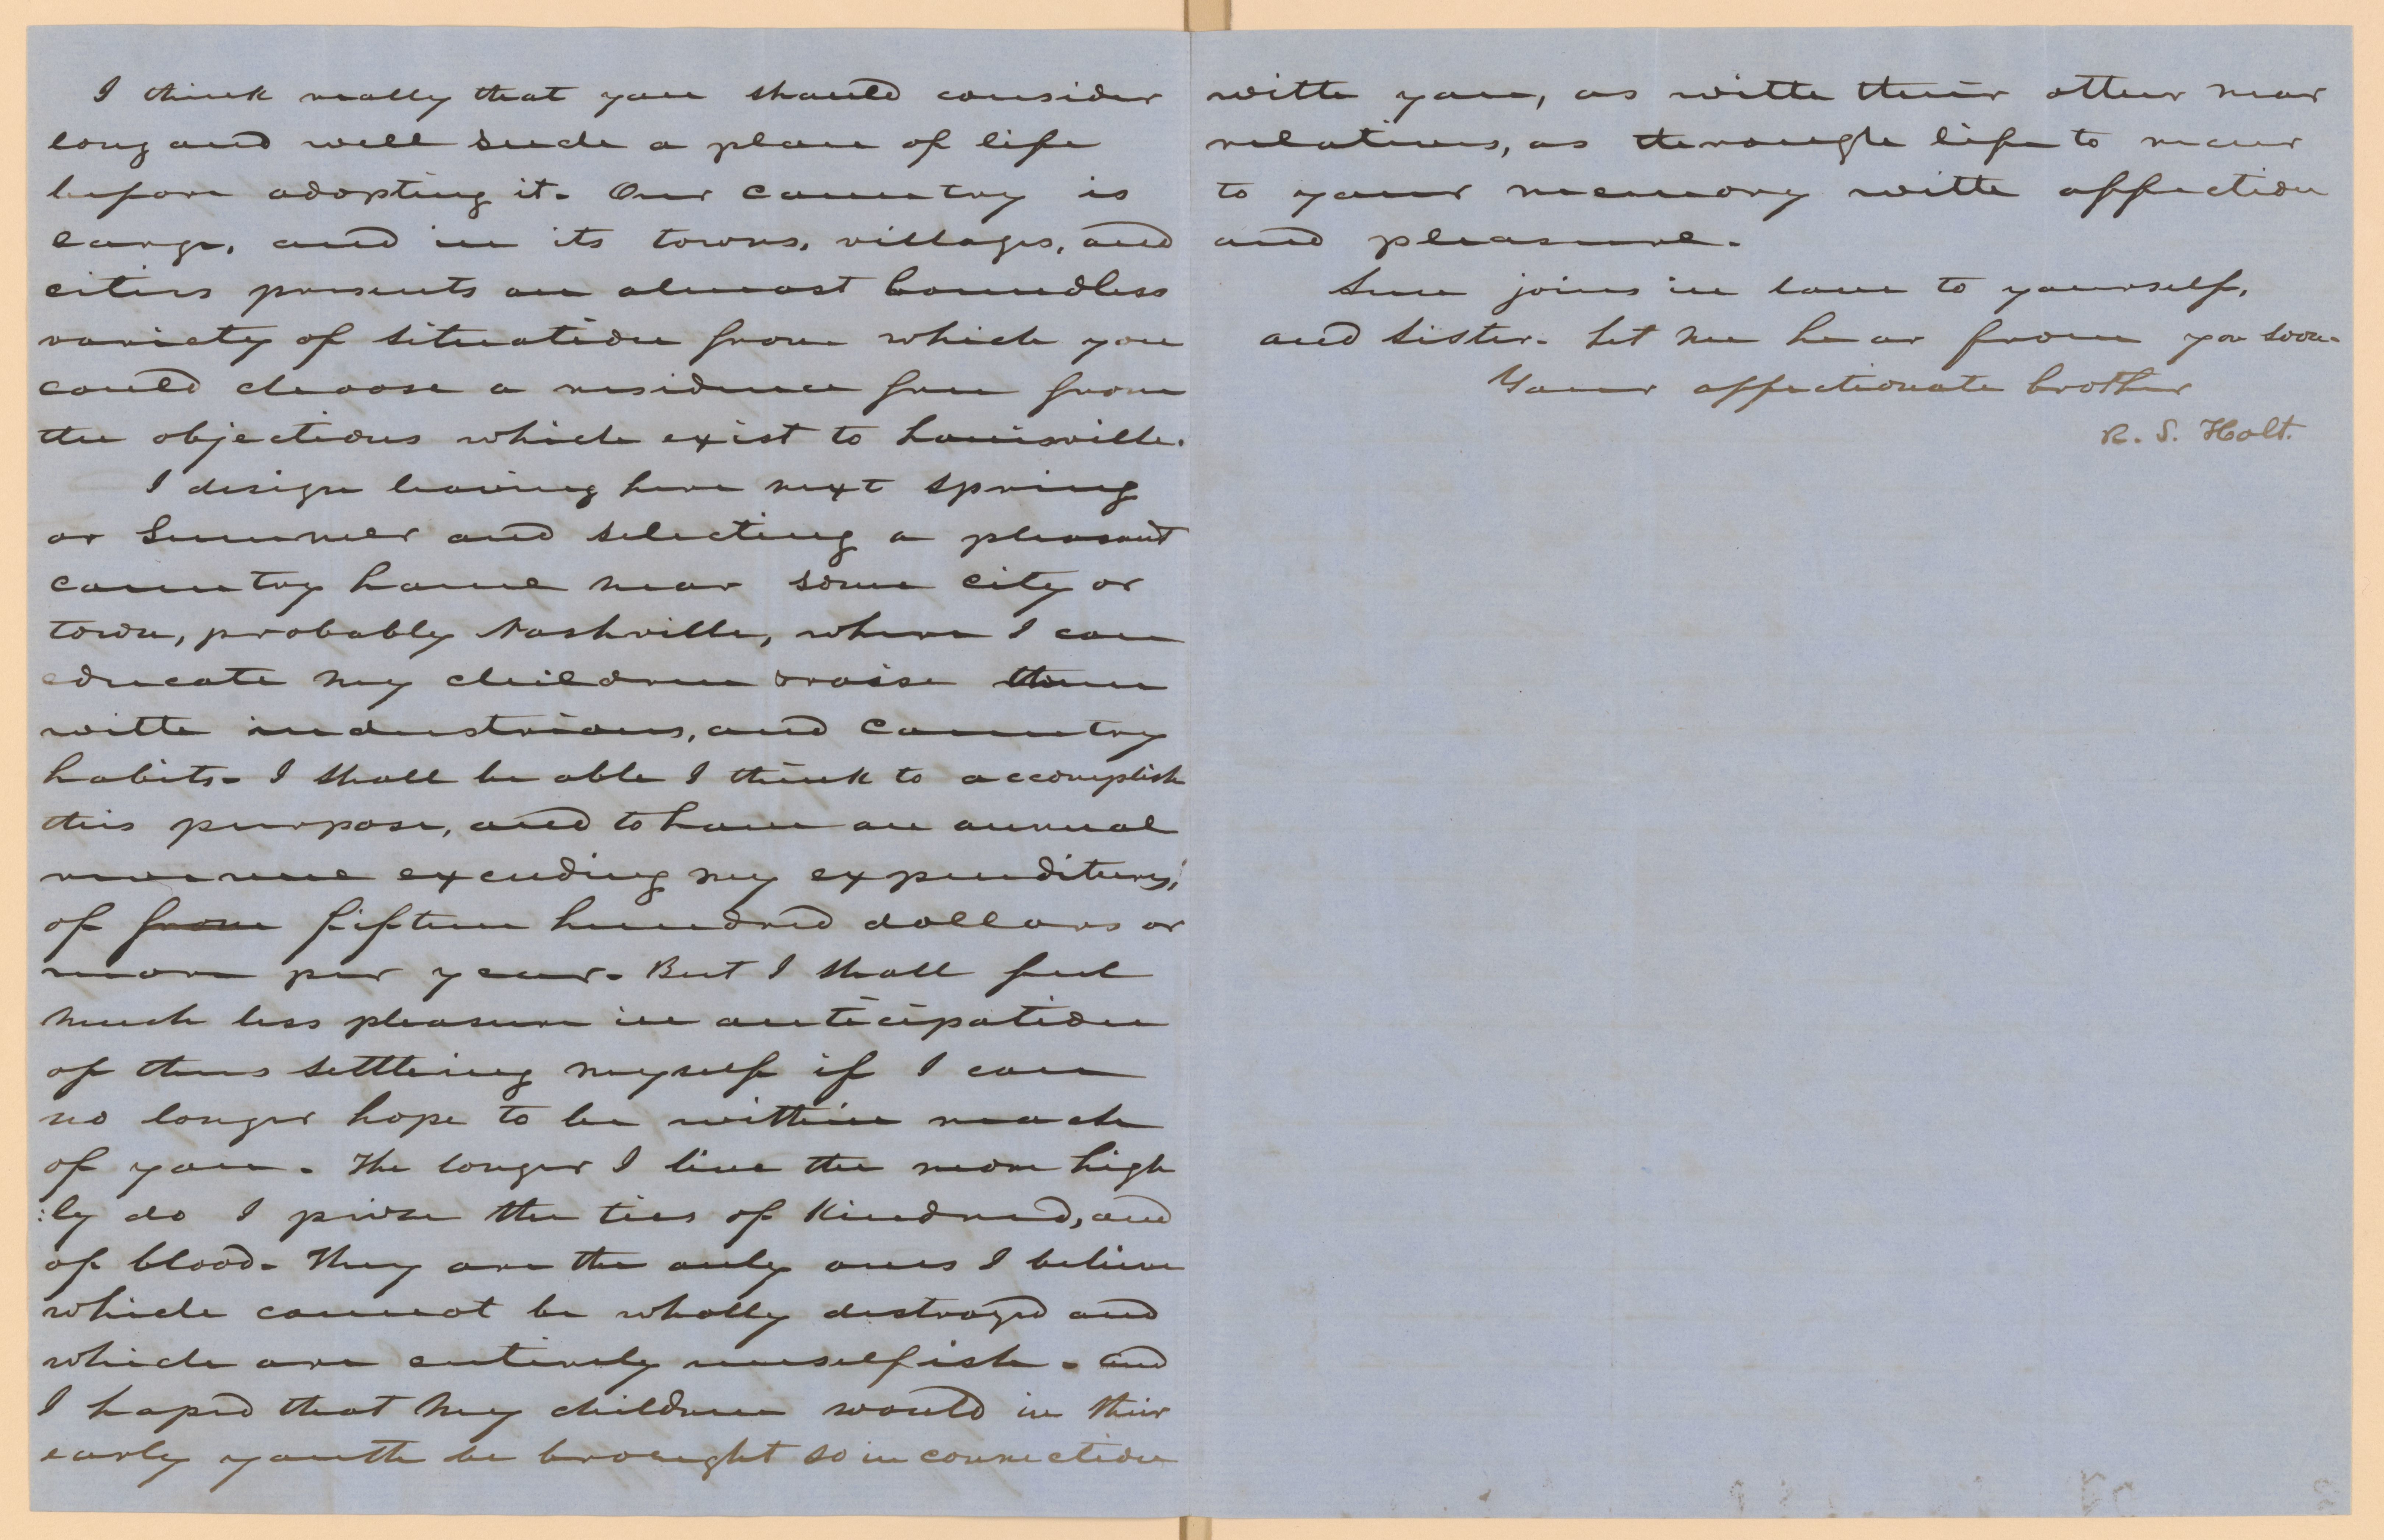 I think really that you should consider
long and well such a plan of life
before adopting it. Our country is
large, and in its towns, villages, and
cities presents an almost boundless
variety of situation from which you
could choose a residence free from
the objections which exist to Louisville.
I design leaving here next spring
or Summer and selecting a pleasant
country home near some city or
town, probably Nashville, where I can
educate my children & raise them
with industrious, and country
habits. I shall be able I think to accomplish
this purpose, and to have an annual
revenue exceeding my expenditures,
of from fifteen hundred dollars or
more per year. But I shall feel
much less pleasure in anticipation
of thus settling myself if I can
no longer hope to be within reach
of you. The longer I live the more high
:ly do I prize the ties of Kindred, and
of blood. They are the only ones I believe
which cannot be wholly destroyed and
which are entirely unselfish. And
I hoped that my children would in their
early youth be brought so in connection
with you, as with their other near
relatives, as through life to recur
to your memory with affection
and pleasure.
Sue joins in love to yourself,
and sister. Let me hear from you soon.
Your affectionate brother
R. S. Holt.